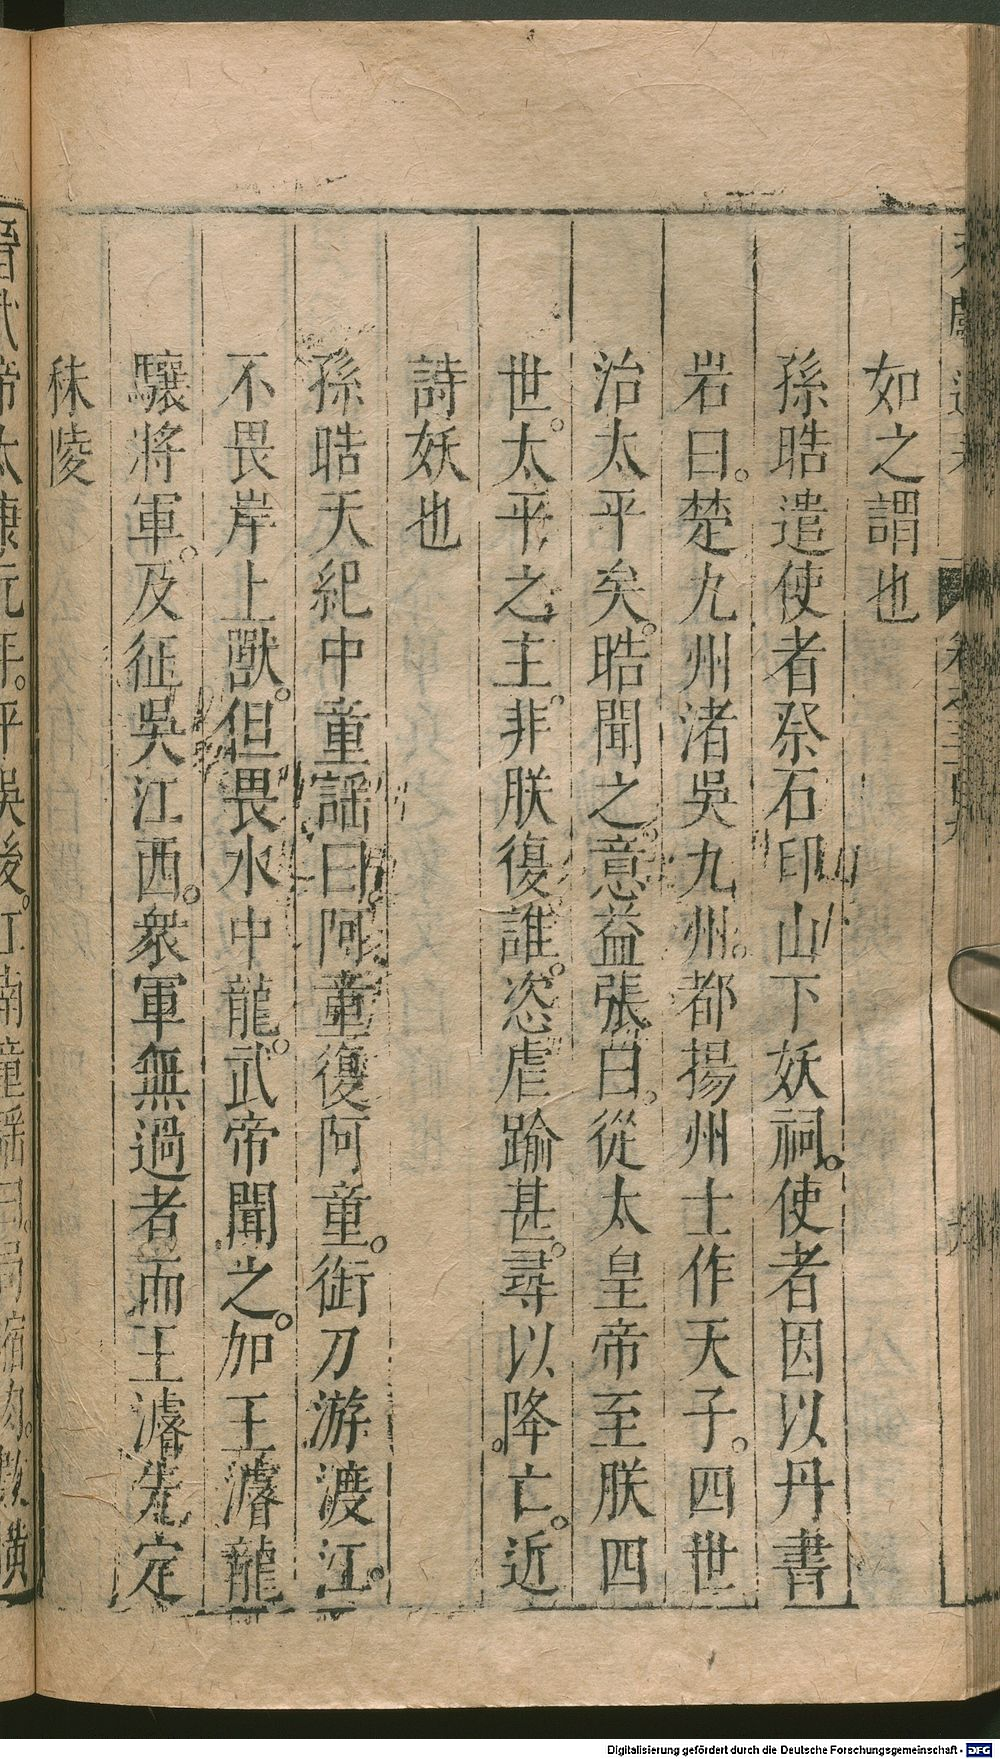 如之謂也
孫晧遣使者祭石印山下妖祠。使者因以丹書
岩曰。楚九州渚吳九州。都揚州士作天子。四世
治太平矣。晧聞之。意益張曰。從太皇帝至朕四
世。太平之主。非朕復誰。恣虐踰甚。尋以降。亡。近
詩妖也
孫晧天紀中童謡曰。阿童復阿童。銜刀游渡江。
不畏岸上獸。但畏水中龍。武帝聞之。加王濬龍
驤將軍。及征吳江西。衆軍無過者而王濬先定
秣陵
晉武帝太康元年。平吳後。江南童謡曰。局縮肉。數橫
Digitalisierung gefördert durch die Deutsche Forschungsgemeinschaft - DFG